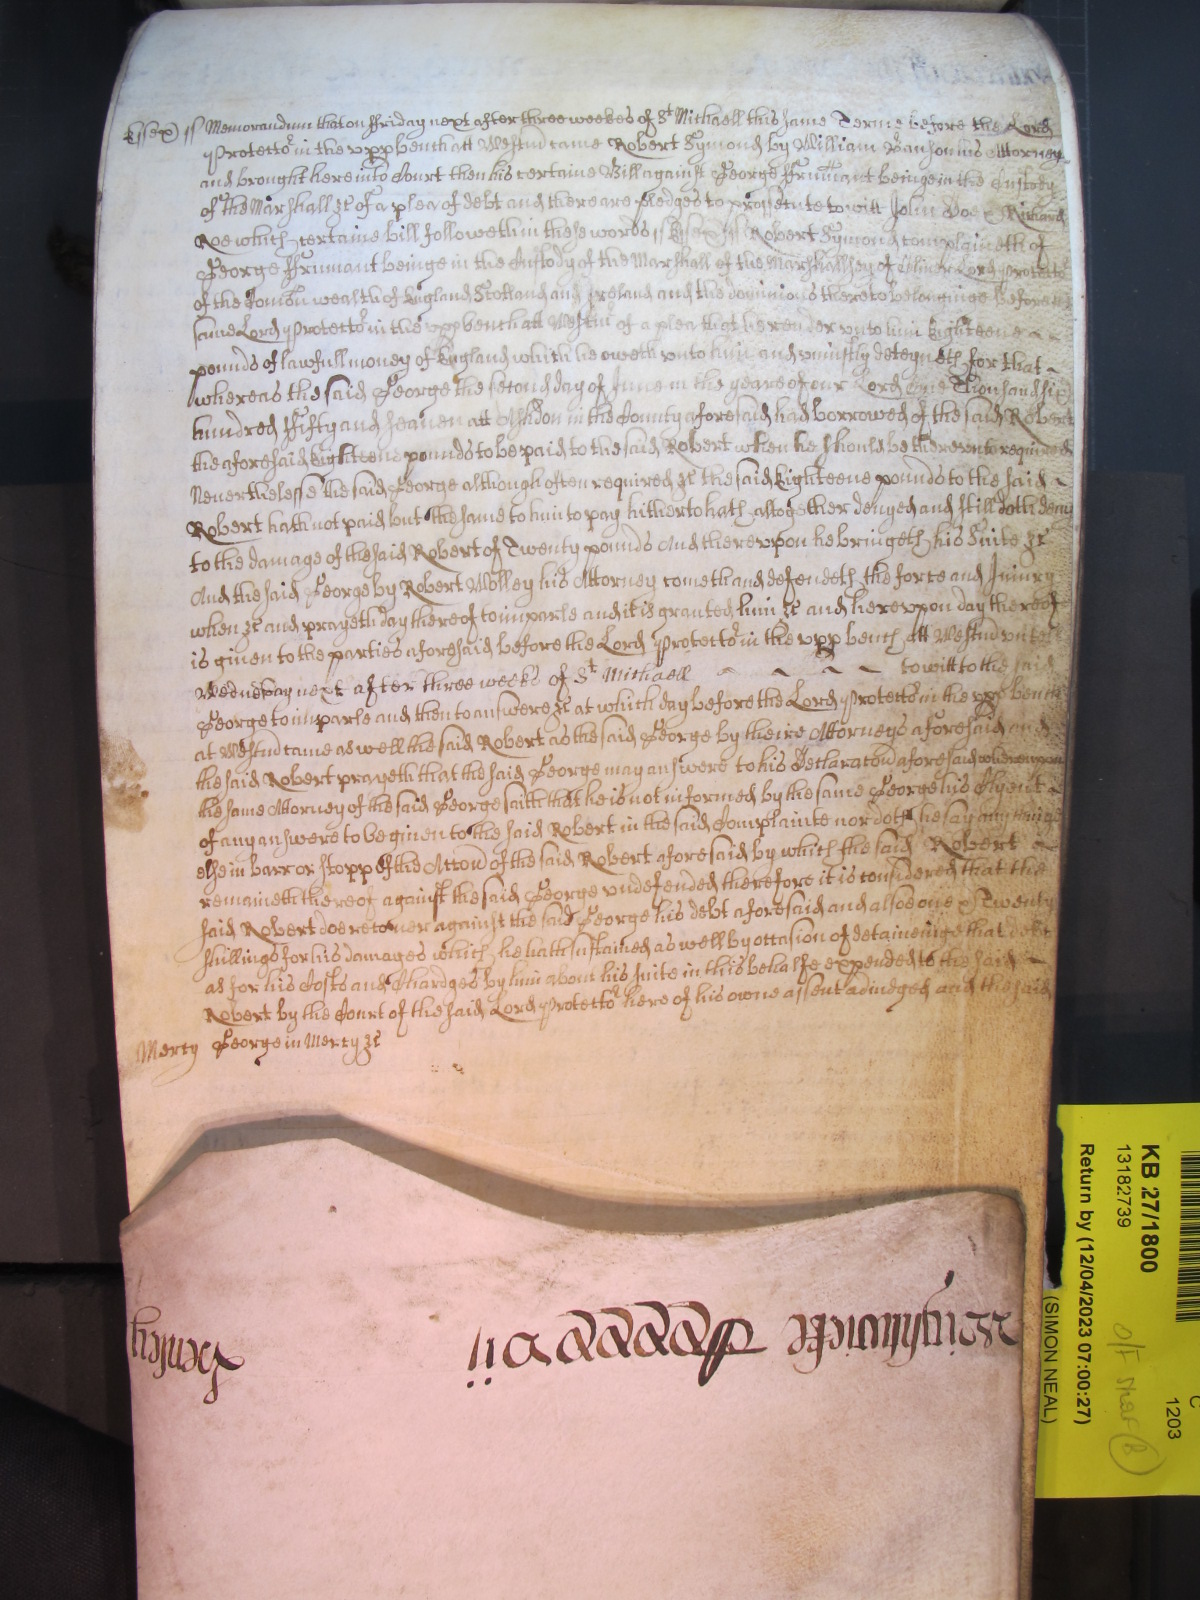 Essex ss Memorandum that on Ffriday next after three weekes of St Michaell this same Terme before the Lord
Protector in the upp bench att Westmr came Robert Symond by William his Attorney
and brought here into Court then his certaine Bill against George Ffrumant beinge in the Custody
of the Marshall &c of a plea of debt and there are pledges to prossecute to witt John Doe & Richard
Roe which certaine bill followeth in these words ss Essex ss Robert Symond complaineth of
George Ffrumant beinge in the Custody of the Marshall of the Marshallsey of Oliver Lord Protector
of the Comon wealth of England Scotland and Ireland and the dominions thereto belonginge before
same Lord Protector in the upp bench att Westmr of a plea that he render unto him Eighteene
pounds of lawfull money of England which he oweth unto him and uniustly deteyneth for that
whereas the said George the second day of June in the yeare of our Lord One Thousand six
hundred Ffifty and seaven att Ashdon in the County aforesaid had borrowed of the said Robert
the aforesaid Eighteene pounds to be paid to the said Robert when he should be thereunto required
Neverthelesse the said George although often required &c the said Eighteene pounds to the said
Robert hath not paid but the same to him to pay hitherto hath altogether denyed and still doth deny
to the damage of the said Robert of Twenty pounds And thereupon he bringeth his Suite &c
And the said George by Robert Molley his Attorney cometh and defendeth the force and Iniury
when &c and prayeth day thereof to imparle and it is granted him &c and hereupon day thereof
is given to the parties aforesaid before the Lord Protector in the upp bench att Westmr untill
Wednesday next after three weeks of St Michaell to witt to the said
George to imparle and then to answere &c at which day before the Lord Protector in the upp bench
at Westmr came as well the said Robert as the said George by theire Attorneys aforesaid and
the said Robert prayeth that the said George may answere to his Declaracon aforesaid whereupon
the same Attorney of the said George saith that he is not informed by the same George his Clyent
of any answere to be given to the said Robert in the said Complainte nor doth he say any thinge
else in barr or stopp of the Accon of the said Robert aforesaid by which the said Robert
remaineth thereof against the said George undefended therefore it is considered that the
said Robert doe recover against the said George his debt aforesaid and alsoe one & Twenty
shillings for his damages which he hath sustained as well by occasion of detaineinge that debt
as for his Costs and Chardges by him about his suite in this behalfe expended to the said
Robert by the Court of the said Lord Protector here of his owne assent adiudged and the said
Mercy George in Mercy &c
KB 27/1800
13182739
Return by (12/04/2023 07:00:27)
(SIMON NEAL)
C
1203